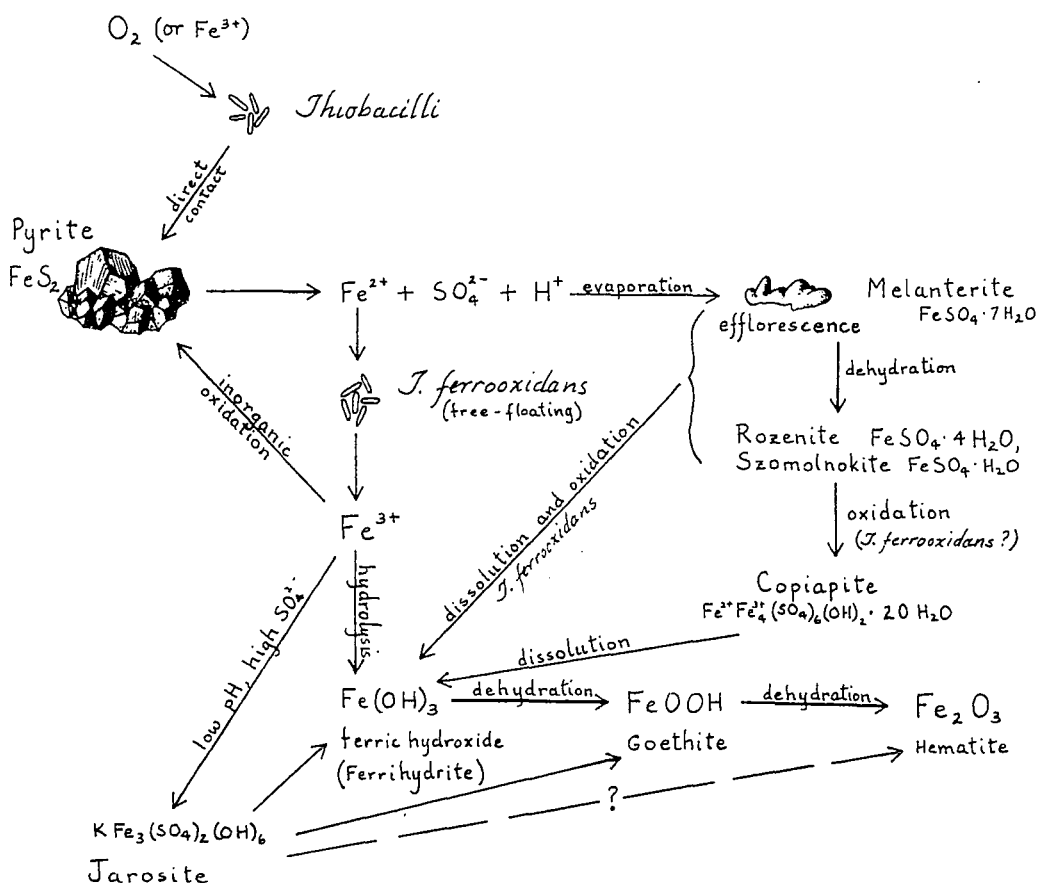 O₂ (or Fe³⁺)
Thiobacilli
direct
contact
Pyrite
FeS₂
Fe²⁺ + SO₄²⁻ + H⁺
evaporation
efflorescence
Melanterite
FeSO₄·7H₂O
dehydration
inorganic
oxidation
T. ferrooxidans
(free-floating)
Rozenite FeSO₄·4H₂O,
Szomolnokite FeSO₄·H₂O
dissolution and oxidation
T. ferrooxidans
oxidation
(T. ferrooxidans?)
Fe³⁺
hydrolysis
low pH, high SO₄²⁻
Copiapite
Fe²⁺Fe₄³⁺(SO₄)₆(OH)₂·20H₂O
dissolution
Fe(OH)₃
dehydration
FeOOH
dehydration
Fe₂O₃
ferric hydroxide
(Ferrihydrite)
Goethite
Hematite
?
KFe₃(SO₄)₂(OH)₆
Jarosite